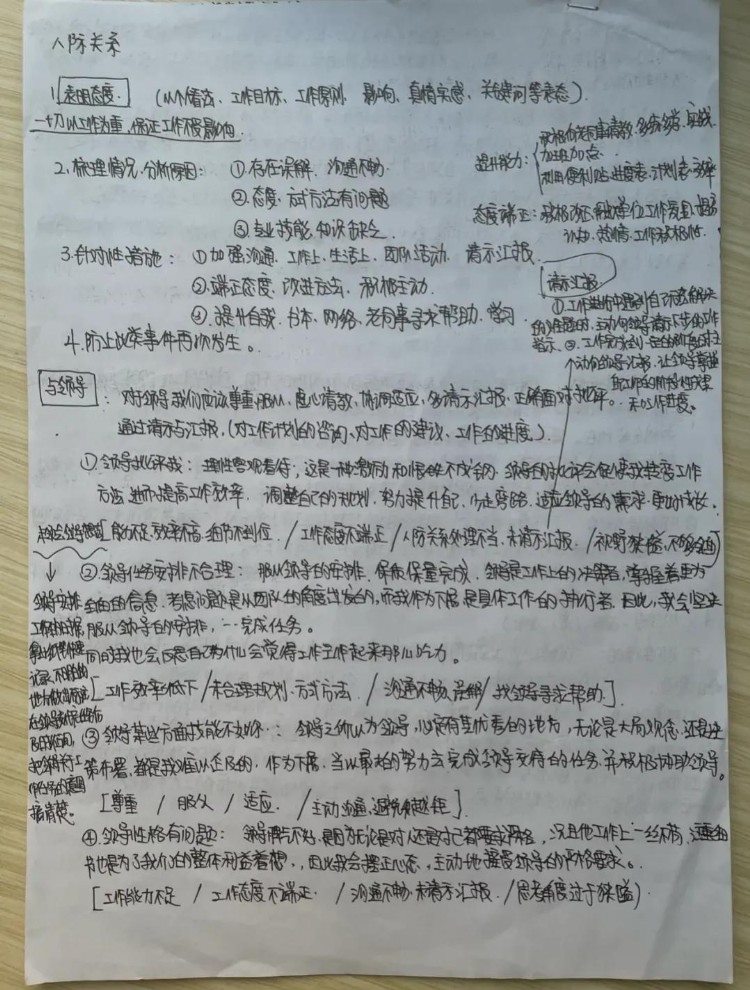 人际关系
1. 表明态度. (从个看法、工作目标、工作原则、影响、真情实感、关键词等表态)
一切以工作为重, 保证工作不受影响.
2. 梳理情况. 分析原因: ①存在误解, 沟通不畅.
②态度、方式方法有问题
③专业技能, 知识缺乏
提升能力:
积极向老同事请教, 多练多学, 实战
加班加点.
利用便利贴, 进度表, 计划表, 效率
态度端正: 积极改正, 融入单位工作氛围, 提高
认知, 热情, 工作积极性.
3. 针对性措施: ①加强沟通. 工作上, 生活上, 团队活动. 请示汇报.
②端正态度, 改进方法, 积极主动.
③提升自我, 书本, 网络, 老同事寻求帮助, 学习.
4. 防止此类事件再次发生。
请示汇报
①工作进行中遇到自己不能解决
的难题时, 主动向领导请示下步的工作
指示. ②. 工作完成到一定的阶段时主
动向领导汇报, 让领导掌握
和工作进度。
与领导: 对于领导我们应该尊重服从, 虚心请教, 协调适应, 多请示汇报, 正确面对批评。
通过请示与汇报, (对工作计划的咨询, 对工作的建议, 工作的进度.)
①领导批评我: 理性客观看待, 这是一种激励和恨铁不成钢. 领导的批评会促使我转变工作
方法 进而提高工作效率. 调整自己的规划, 努力提升自己, 少走弯路. 适应领导的需求, 更好成长.
[能力不足, 效率不高, 细节不到位. / 工作态度不端正 / 人际关系处理不当, 未请示汇报. / 视野狭隘, 不够全面]
②领导任务安排不合理: 服从领导的安排, 保质保量完成. 领导是工作上的决策者, 掌握着更为
全面的信息, 考虑问题是从团队的角度出发的, 而我作为下属是具体工作的执行者, 因此, 我会坚决
服从领导的安排, 一一完成任务。
同时我也会反思自己为什么会觉得工作工作起来那么吃力。
[工作效率低下 / 未合理规划. 方式方法. / 沟通不畅, 误解 / 找领导寻求帮助.]
领导安排
工作的时候
③领导某些方面技能不如你: 领导之所以为领导, 必定有其优秀的地方, 无论是大局观念, 还是决
策部署, 都是我难以企及的. 作为下属, 当以最大的努力去完成领导交付的任务, 并积极协助领导。
[尊重 / 服从 / 适应. / 主动沟通, 避免越矩].
④领导性格有问题: 领导脾气不好, 是因为无论是对人还是对己都要求严格, 况且他工作上一丝不苟, 注重细
节也是为了我们的整体利益着想, 因此我会摆正心态, 主动地接受领导的严格要求。
[工作能力不足 / 工作态度不端正. / 沟通不畅. 未请示汇报. / 思考角度过于狭隘)